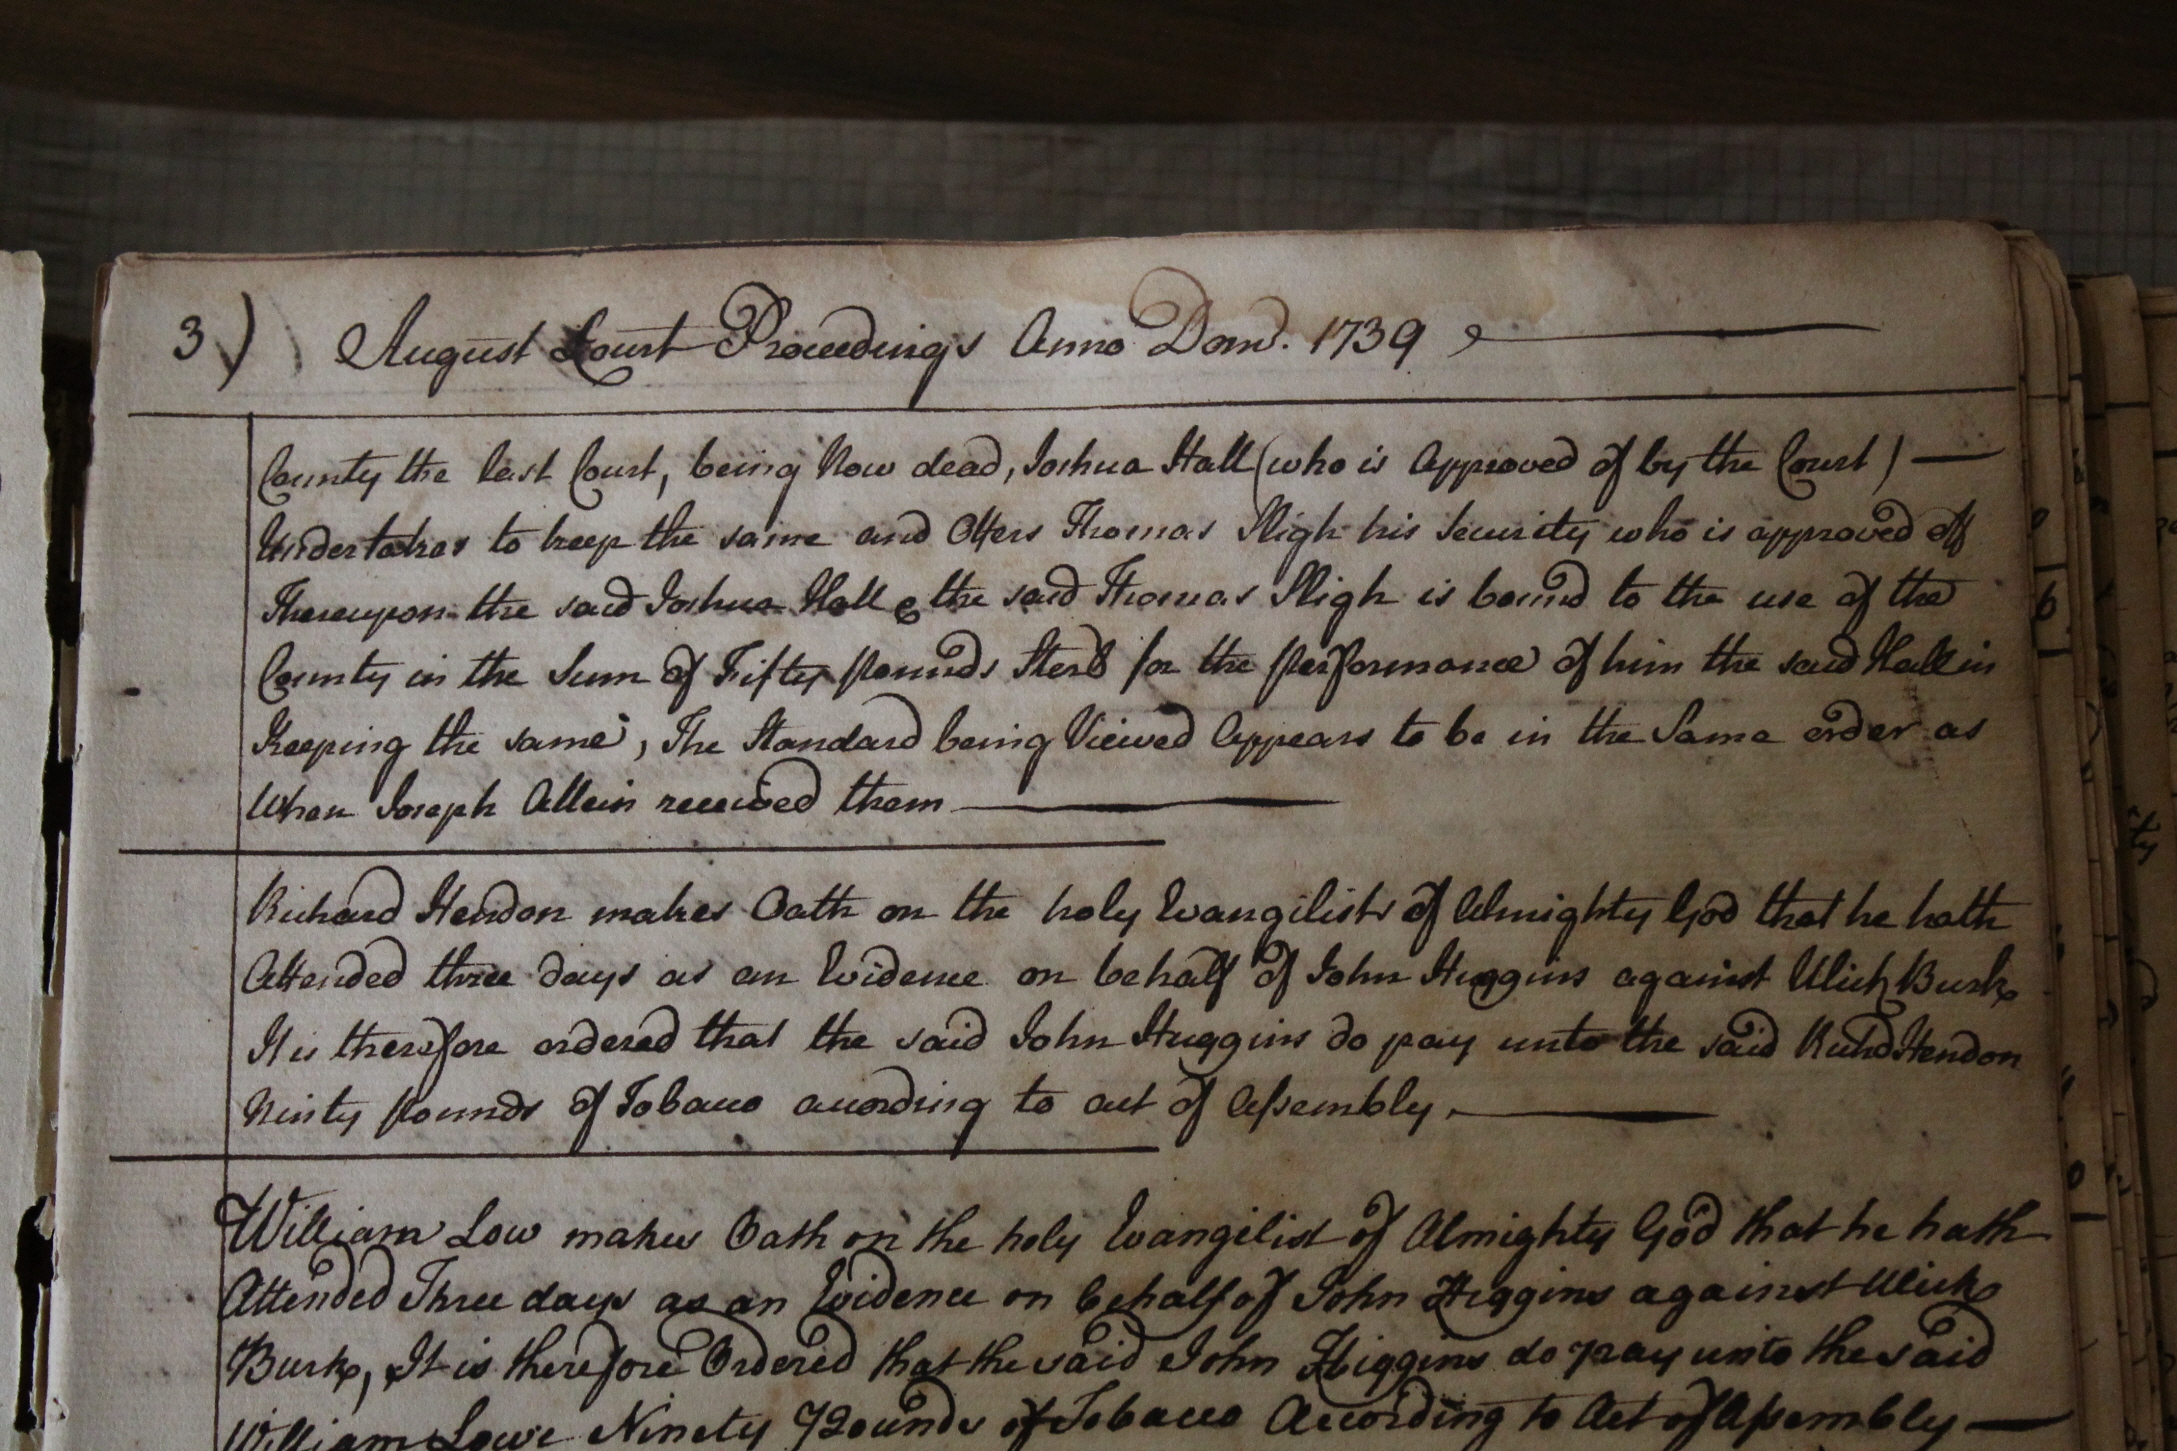 3) August Court Proceedings Anno Domi. 1739
County the last Court, being Now dead, Joshua Hall (who is Approved of by the Court)
Undertakes to keep the same and Offers Thomas Sligh his Security who is approved off
Thereupon the said Joshua Hall & the said Thomas Sligh is bound to the use of the
County in the Sum of Fifty pounds Sterl for the performance of him the said Hall in
Keeping the same, The Standard being Viewed Appears to be in the Same order as
When Joseph Allein received them
Richard Hendon makes Oath on the holy Evangilists of Almighty God that he hath
Attended three days as an Evidence on behalf of John Huggins against Ulick Burk
It is therefore ordered that the said John Huggins do pay unto the said Richd Hendon
Ninty pounds of Tobacco according to act of Assembly.
William Low makes Oath on the holy Evangilist of Almighty God that he hath
Attended Three days as an Evidence on behalf of John Higgins against Ulick
Burk, It is therefore Ordered that the said John Higgins do pay unto the said
William Lowe Ninety Pounds of Tobacco According to Act of Assembly